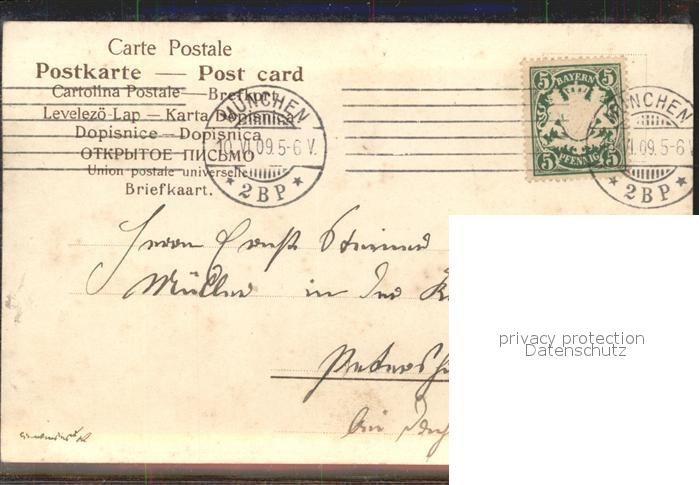 Carte Postale
Postkarte — Post card
Cartolina Postale — Brefkort
Levelező-Lap — Karta Dopisnica
Dopisnice — Dopisnica
ОТКРЫТОЕ ПИСЬМО
Union postale universelle
Briefkaart.
MÜNCHEN
10.VI.09.5-6 V.
* 2BP *
5 BAYERN 5
5 PFENNIG 5
MÜNCHEN
VI.09.5-6 V.
* 2BP *
Herrn Ernst
Müller in der
privacy protection
Datenschutz